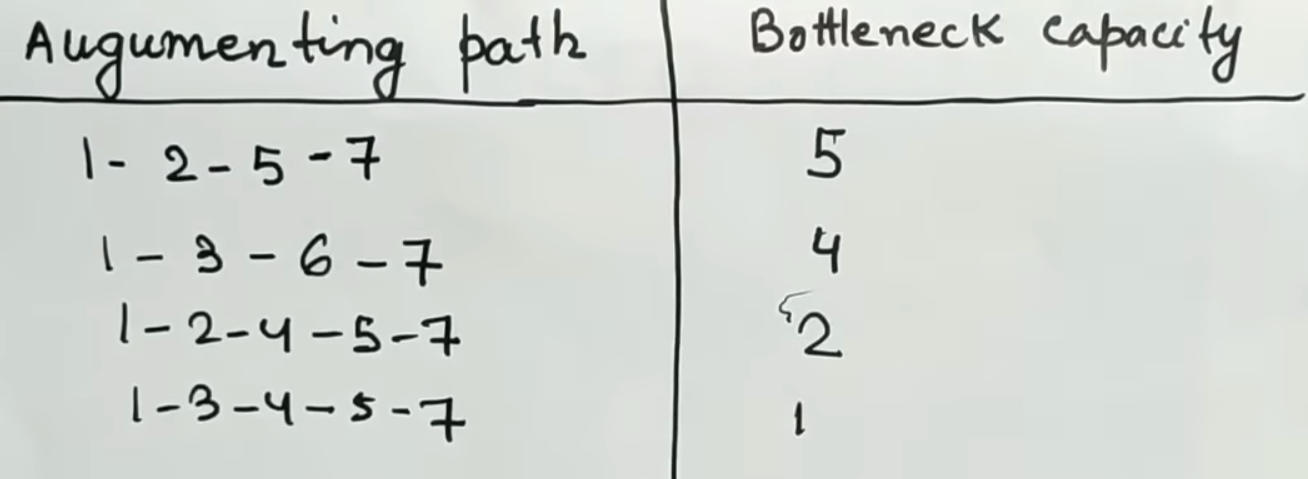 Augumenting path Bottleneck capacity
1 - 2 - 5 - 7 5
1 - 3 - 6 - 7 4
1 - 2 - 4 - 5 - 7 2
1 - 3 - 4 - 5 - 7 1